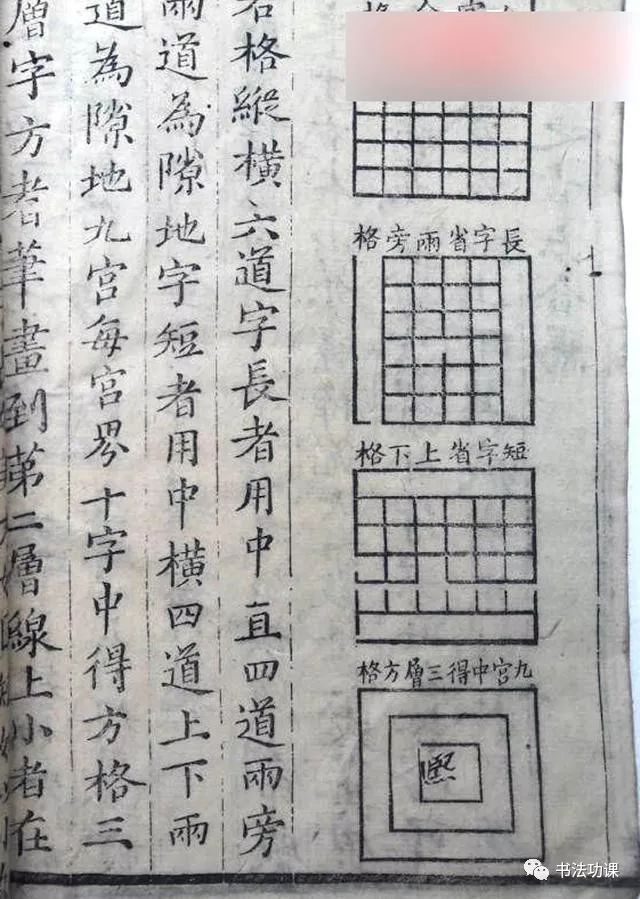 長字省兩旁格
短字省上下格
九宮中得三層方格
熙
格縱橫六道字長者用中直四道兩旁
兩道為隙地字短者用中橫四道上下兩
道為隙地九宮每宮界十字中得方格三
層字方者筆畫到第二層線上小者在
书法功课